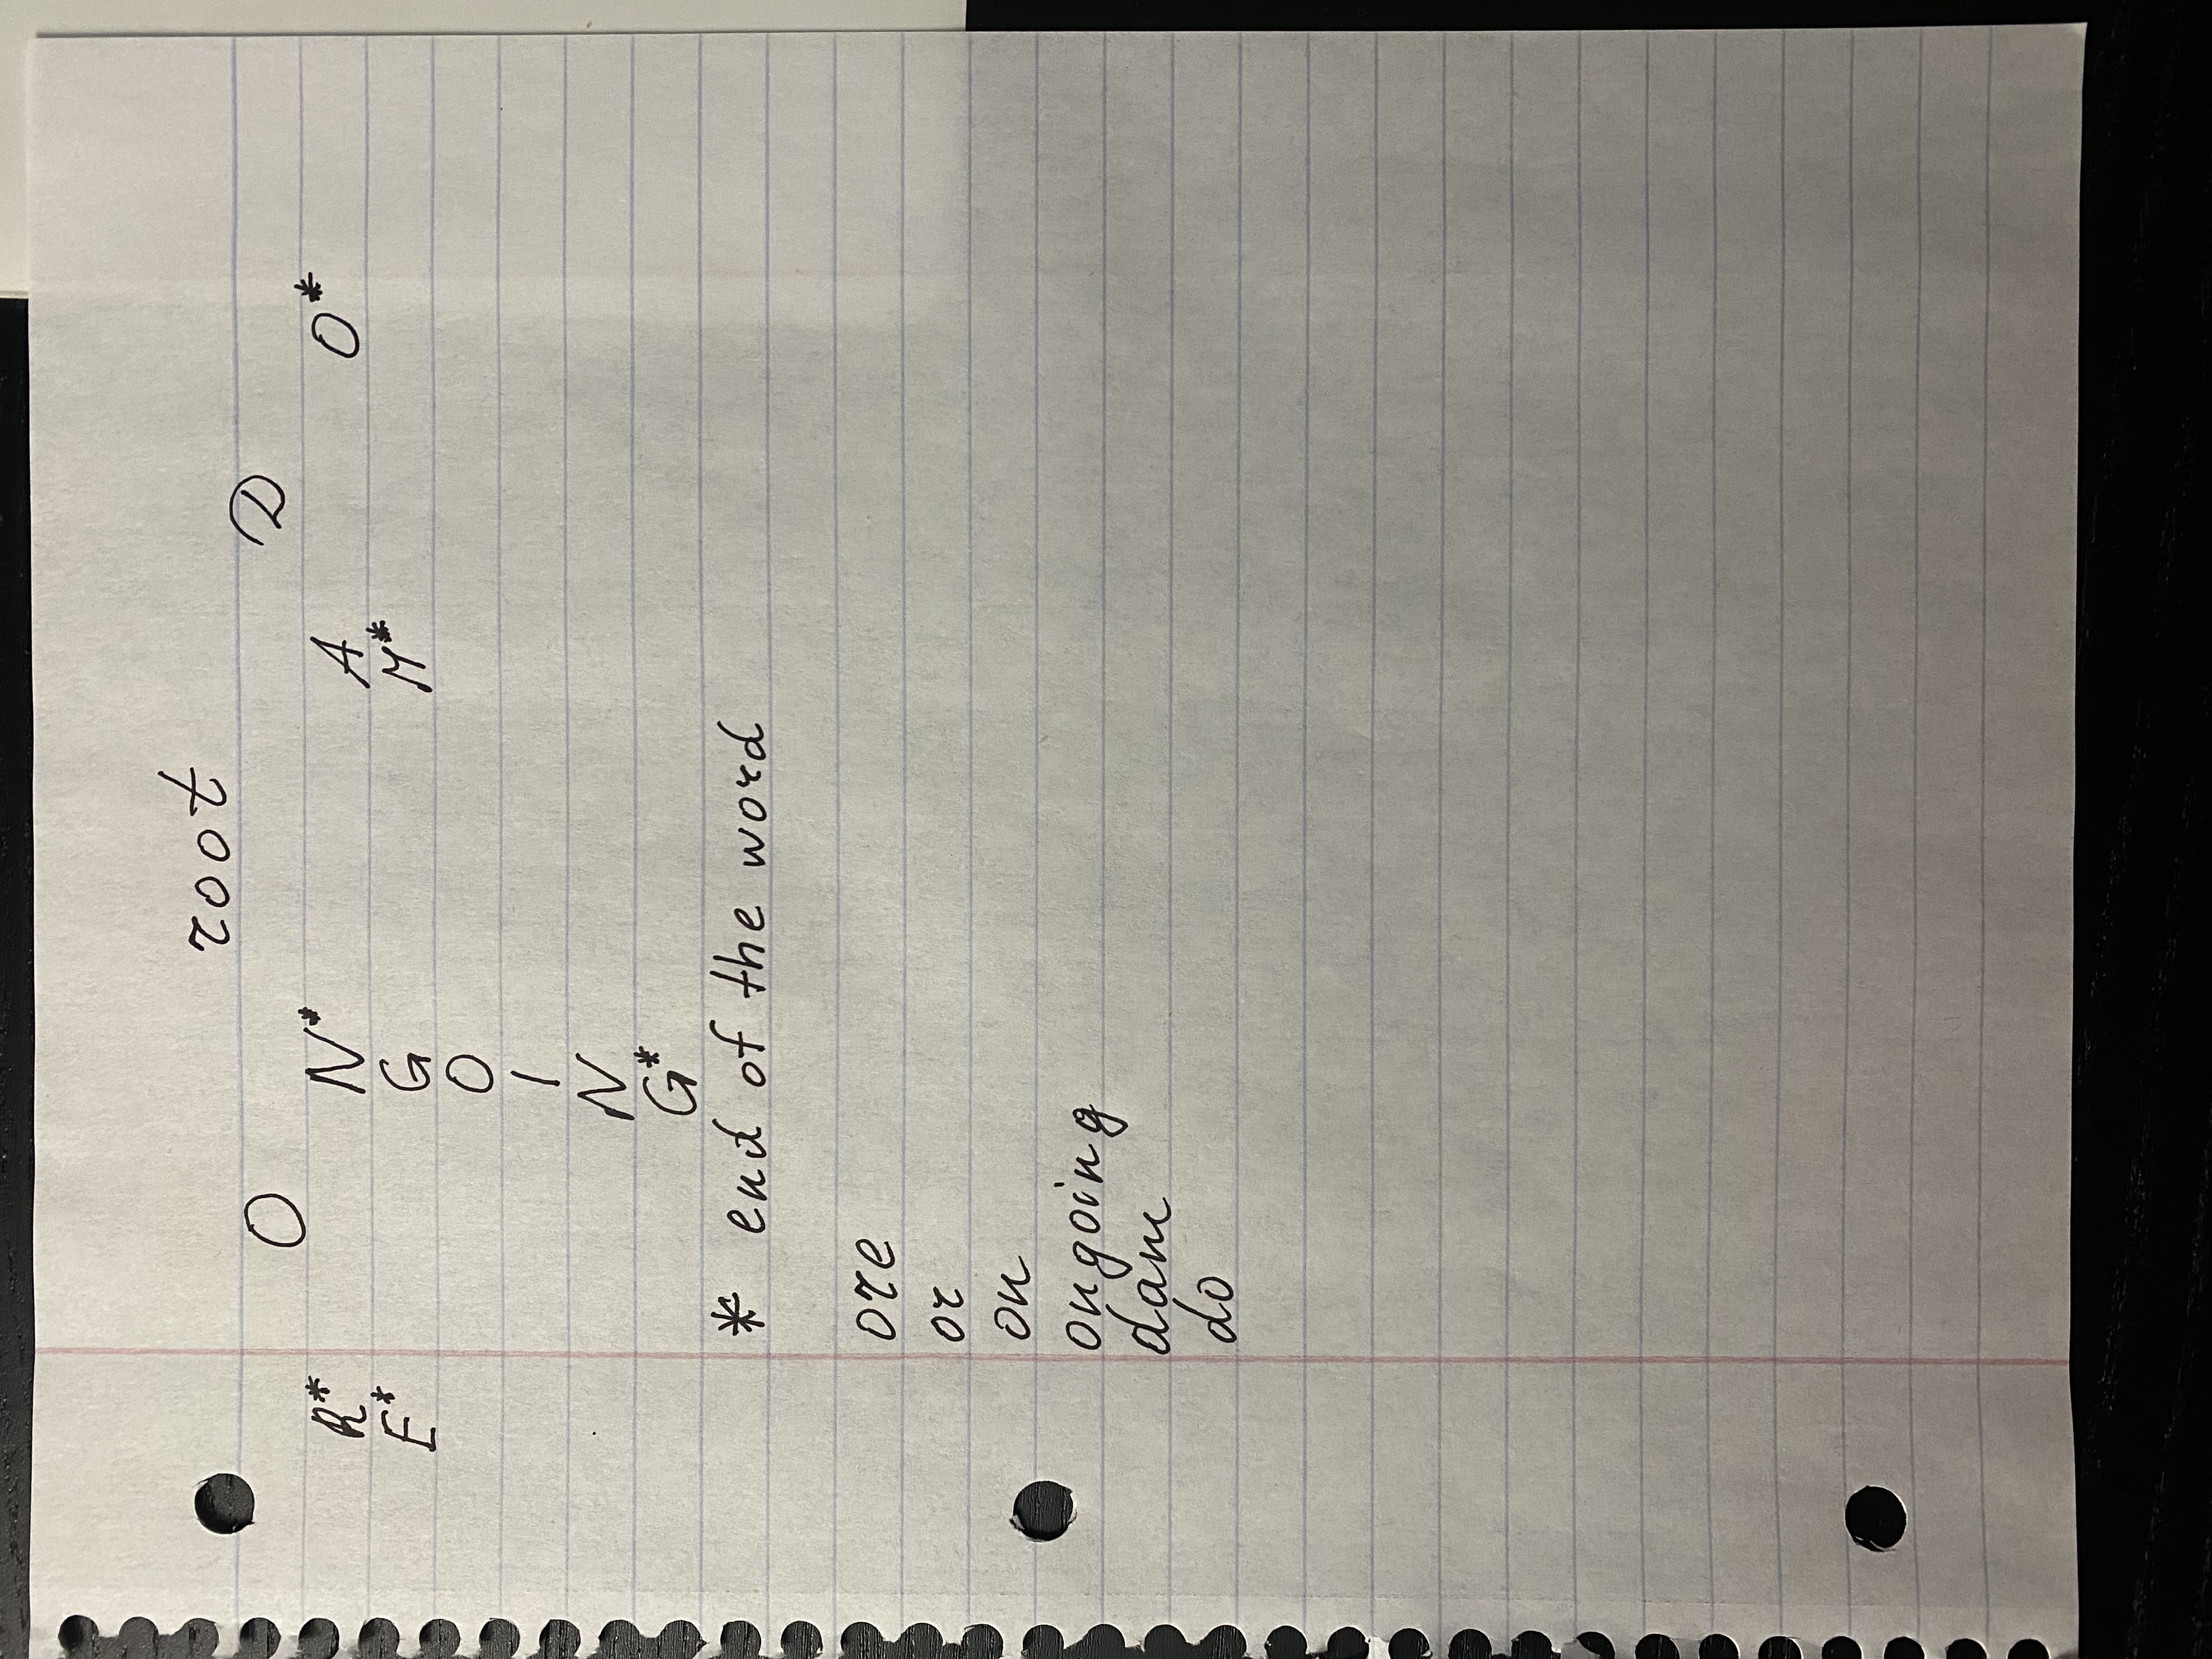 root
O D
R* N* A O*
E* G M*
O
I
N
G*
* end of the word
ore
or
on
ongoing
dam
do